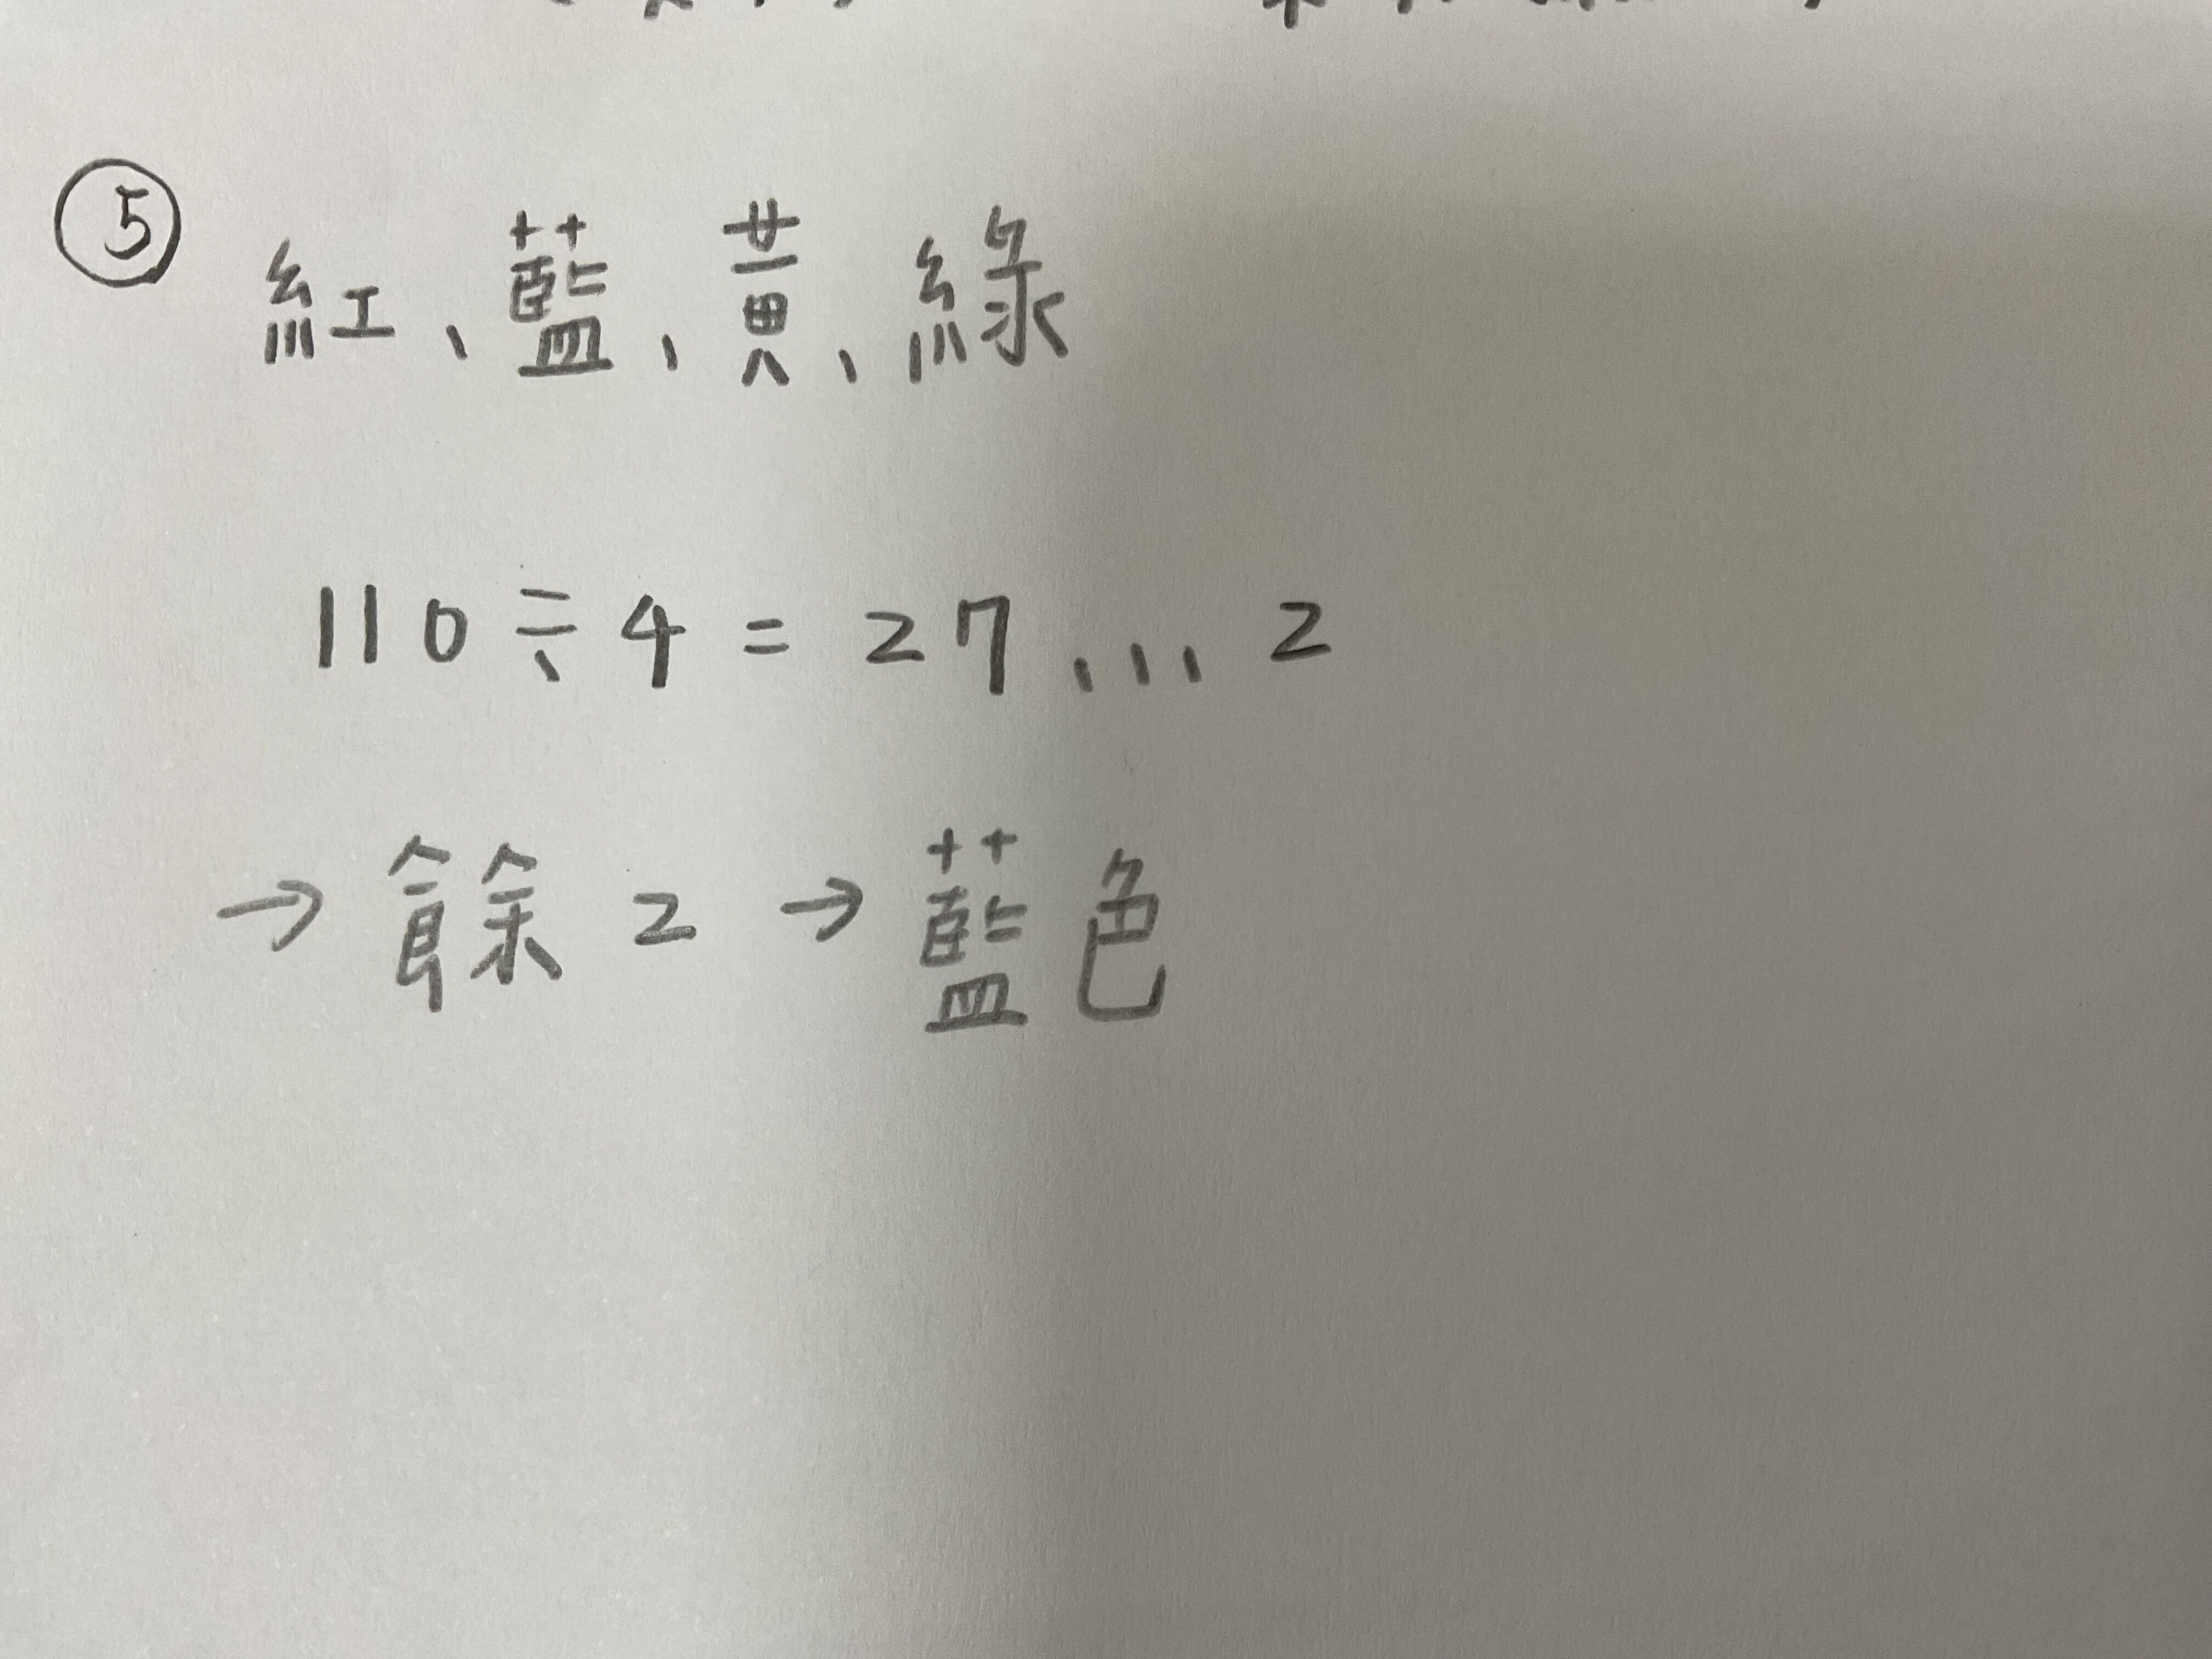 ⑤ 紅、藍、黃、綠
110÷4=27...2
→餘2→藍色